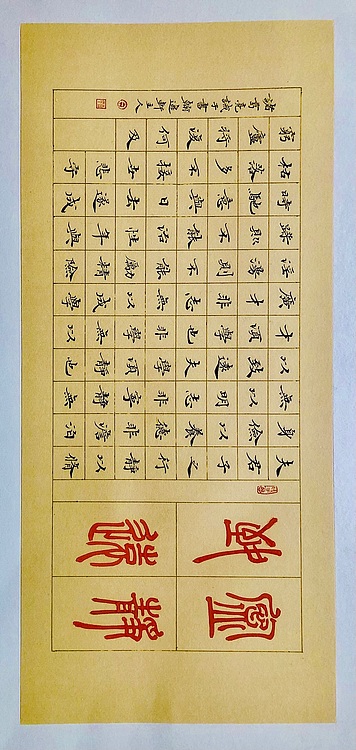 寧靜
致遠
夫君子之行靜以修
身儉以養德非澹泊
無以明志非寧靜無
以致遠夫學須靜也
才須學也非學無以
廣才非志無以成學
淫慢則不能勵精險
躁則不能治性年與
時馳意與日去遂成
枯落多不接世悲守
窮廬將復何及
諸葛亮誡子書 翰逸軒主人